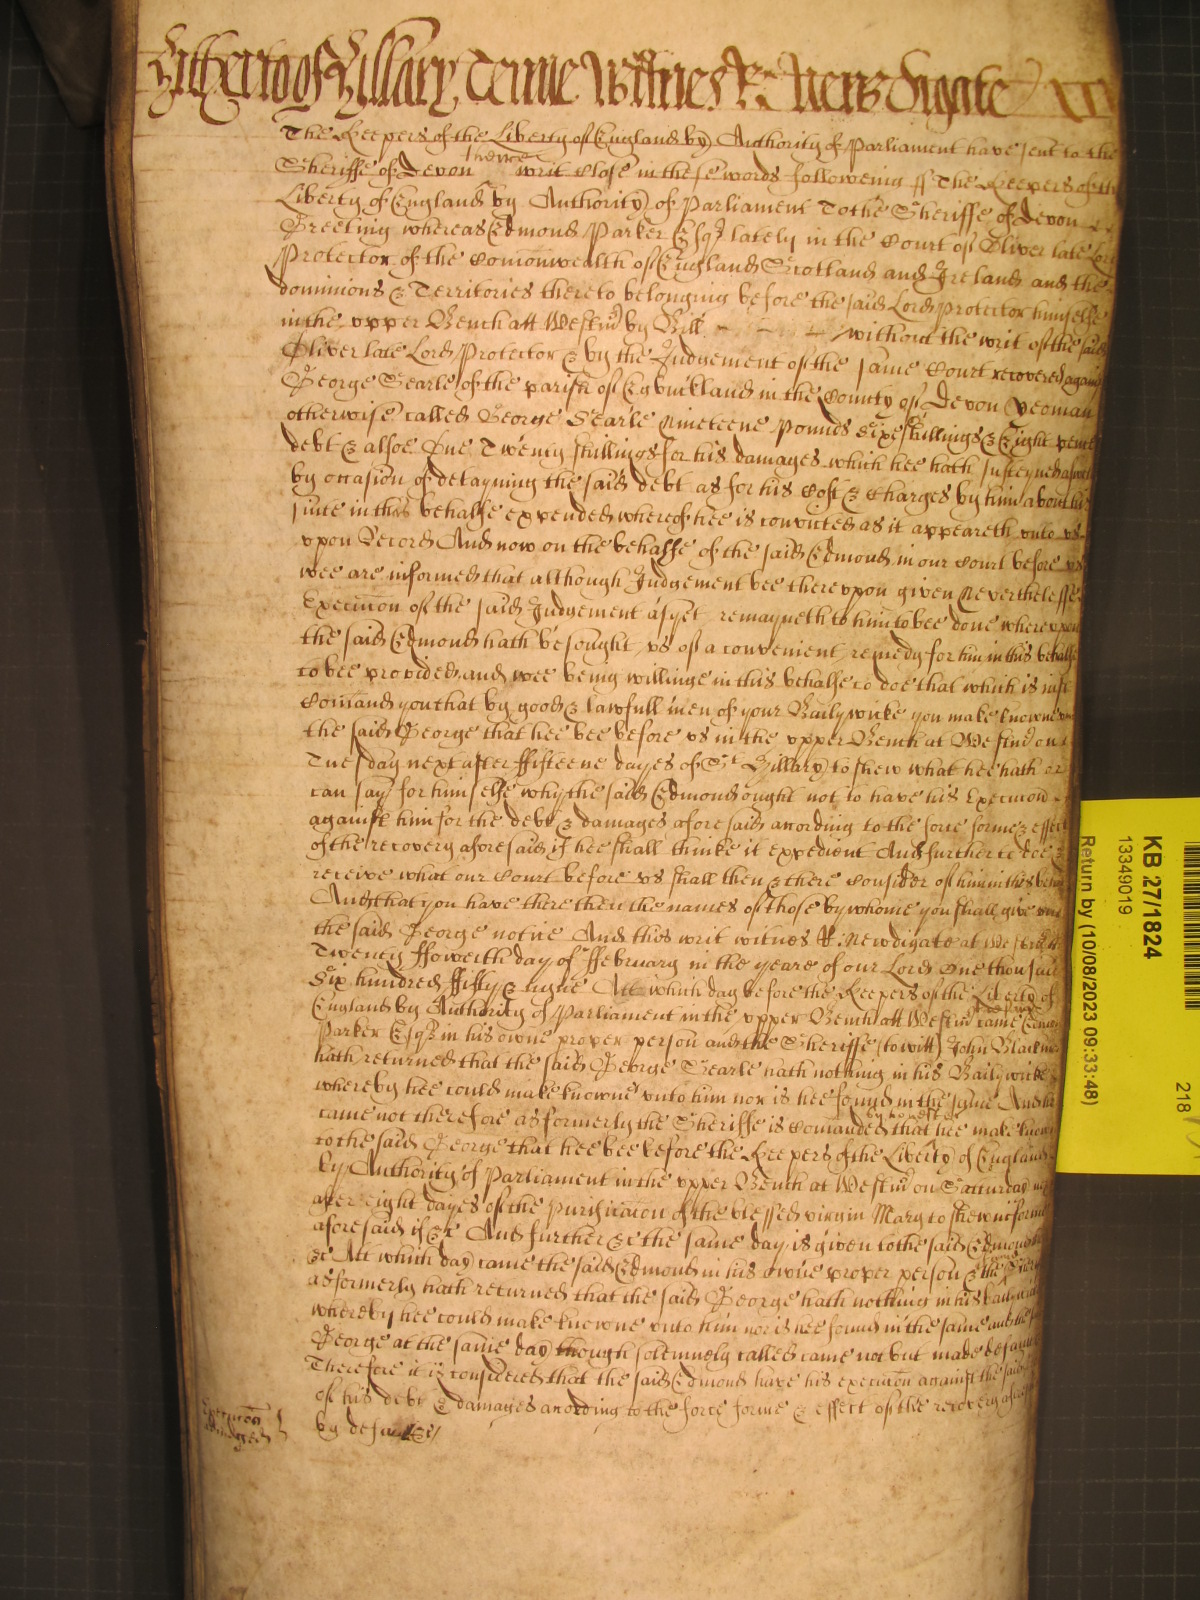 Hitherto of Hillary Terme Witnes R: Newdigate
The Keepers of the Liberty of England by Authority of Parliament have sent to the
Sheriffe of Devon their writ close in these words followeing ss The Keepers of the
Liberty of England by Authority of Parliament To the Sheriffe of Devon
Greeting whereas Edmond Parker Esqr lately in the Court of Oliver late Lord
Protector of the Comonwealth of England Scotland and Ireland and the
dominions & Territories thereto belonging before the said Lord Protector himselfe
in the upper Bench att Westmr by Bill without the writ of the said
Oliver late Lord Protector & by the Judgement of the same Court recovered against
George Searle of the parish of Egbuckland in the County of Devon yeoman
otherwise called George Searle Nineteene pounds Sixe shillings & Eight pence
debt & alsoe One Twenty shillings for his damages which hee hath susteyned aswell
by occasion of detayning the said debt as for his Cost & Charges by him about his
suite in this behalfe expended whereof hee is convicted as it appeareth unto us
upon Record And now on the behalfe of the said Edmond in our Court before us
wee are informed that although Judgement bee thereupon given Neverthelesse
Execucon of the said Judgement as yet remayneth to him to bee done whereupon
the said Edmond hath besought us of a convenient remedy for him in this behalfe
to bee provided and wee being willinge in this behalfe to doe that which is just
Comand you that by good & lawfull men of your Bailywicke you make knowne unto
the said George that hee bee before us in the upper Bench at Westmr on
Tuesday next after ffifteene dayes of St Hillary to shew what hee hath or
can say for himselfe why the said Edmond ought not to have his Execucon
against him for the debt & damages aforesaid according to the force forme & effect
of the recovery aforesaid if hee shall thinke it expedient And further to doe &
receive what our Court before us shall then & there Consider of him in this behalfe
And that you have there then the names of those by whome you shall give unto
the said George notice And this writ witnes R: Newdigate at Westmr
Twenty ffowerth day of ffebruary in the yeare of our Lord One thousand
Six hundred ffifty & nyne Att which day before the Keepers of the Liberty of
England by Authority of Parliament in the upper Bench att Westmr came Edmond
Parker Esqr in his owne proper person and the Sheriffe (to witt) John Blackmore
hath returned that the said George Searle hath nothing in his Bailywicke
whereby hee could make knowne unto him nor is hee found in the same And hee
came not therefore as formerly the Sheriffe is Comanded that hee make knowne
to the said George that hee bee before the Keepers of the Liberty of England
by Authority of Parliament in the upper Bench at Westmr on Satturday next
after eight dayes of the purificacon of the blessed virgin Mary to shew in forme
aforesaid if &c And further &c the same day is given to the said Edmond
&c Att which day came the said Edmond in his owne proper person & the Sheriffe
as formerly hath returned that the said George hath nothing in his bailywicke
whereby hee could make knowne unto him nor is hee found in the same and the said
George at the same day though solemnely called came not but made default
Therefore it is considered that the said Edmond have his execucon against the said
of his debt & damages according to the force forme & effect of the recovery aforesaid
by default &c
Execucon
adjudged
KB 27/1824
13349019
218
Return by (10/08/2023 09:33:48)